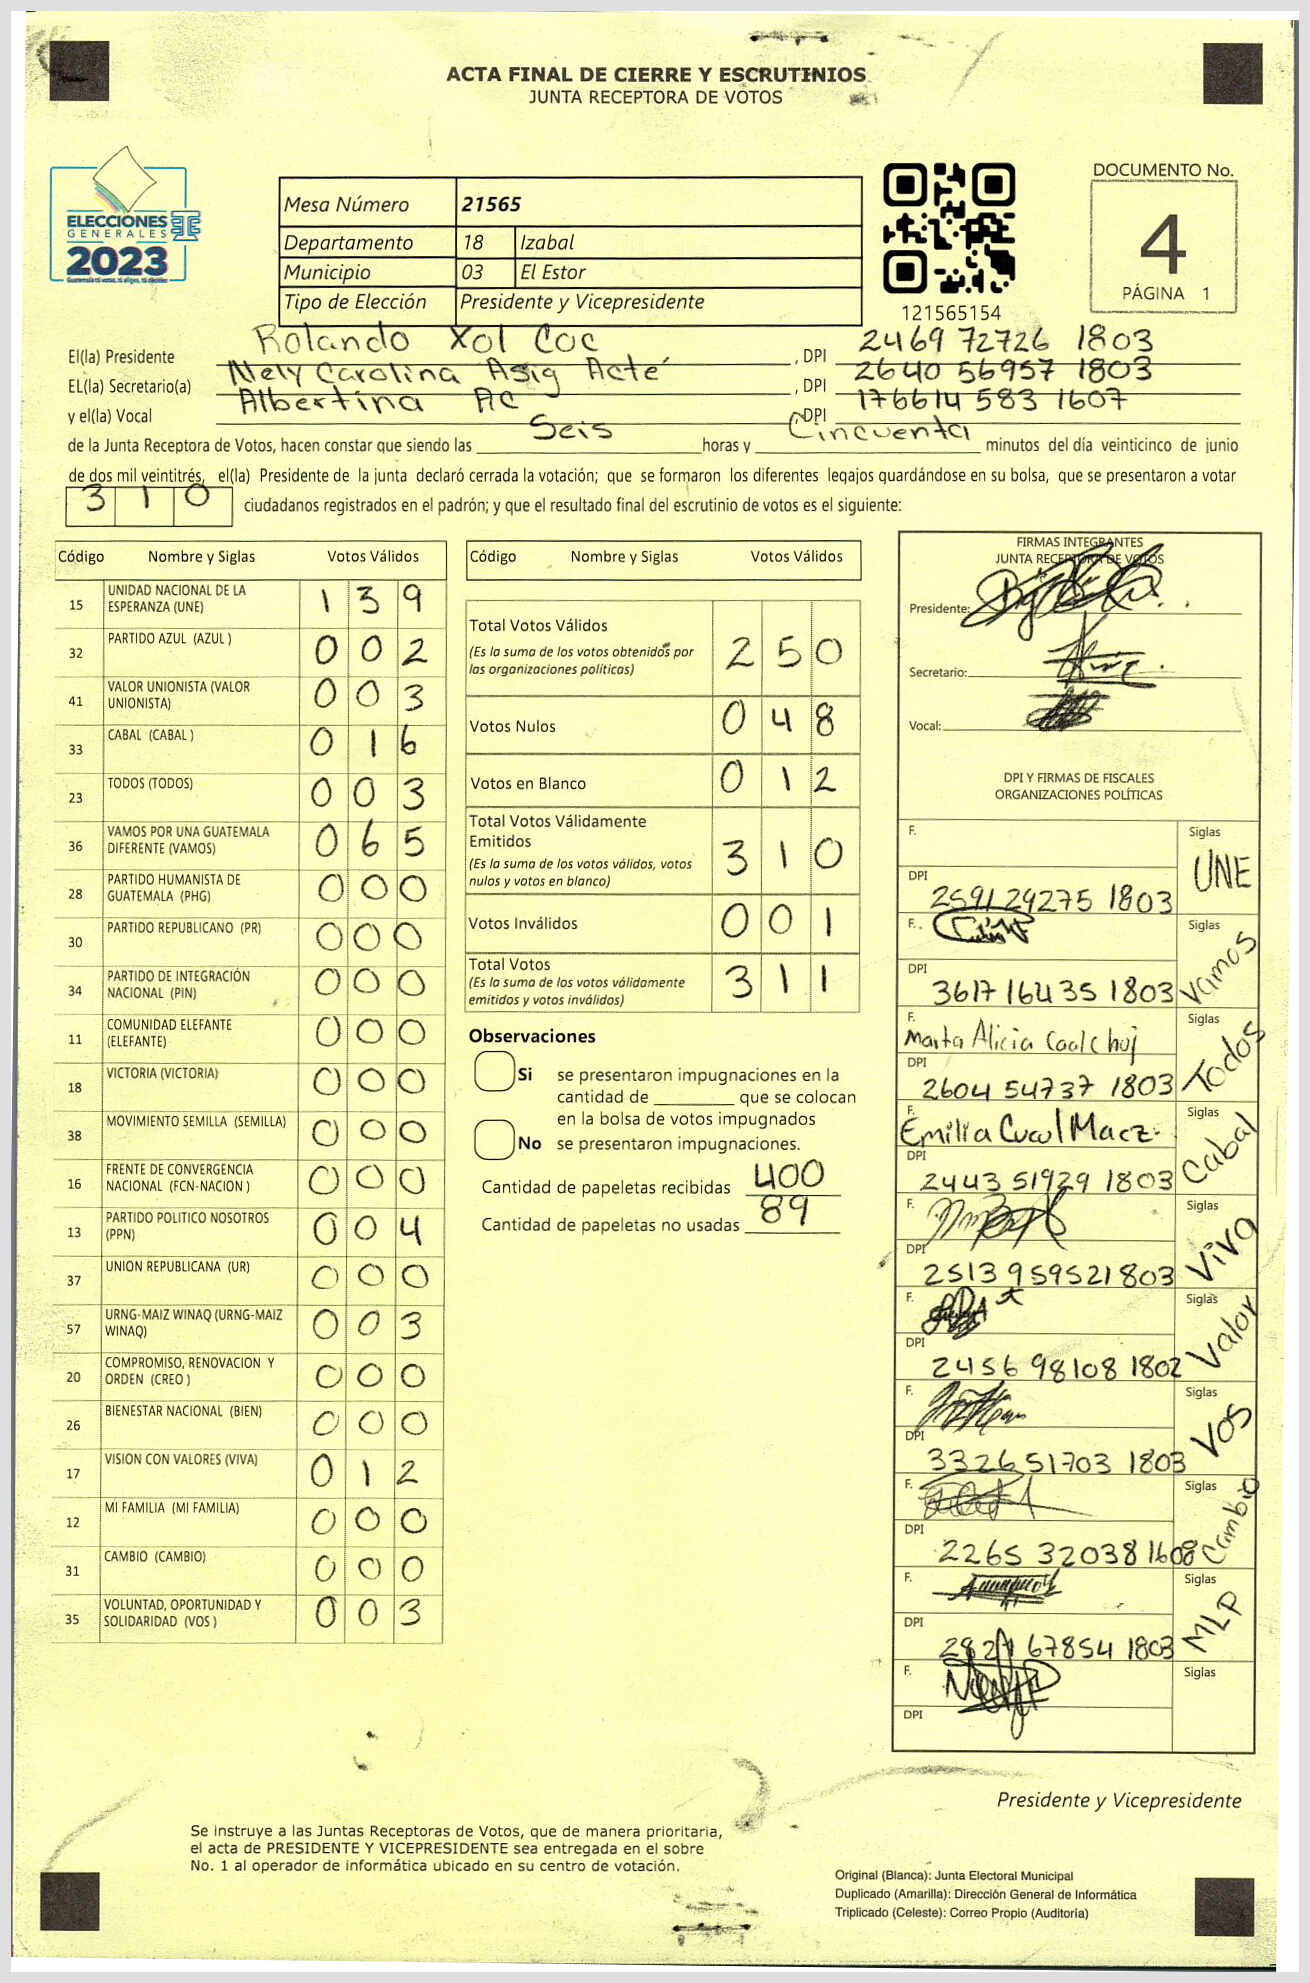 ACTA FINAL DE CIERRE Y ESCRUTINIOS
JUNTA RECEPTORA DE VOTOS
ELECCIONES
GENERALES
2023
Mesa Número 21565
Departamento 18 Izabal
Municipio 03 El Estor
Tipo de Elección Presidente y Vicepresidente
121565154
DOCUMENTO No.
4
PÁGINA 1
El(la) Presidente Rolando Xol Coc , DPI 2469 72726 1803
EL(la) Secretario(a) Nely Carolina Asig Acté , DPI 2640 56957 1803
y el(la) Vocal Albertina Ac , DPI 176614583 1607
de la Junta Receptora de Votos, hacen constar que siendo las Seis horas y Cincuenta minutos del día veinticinco de junio
de dos mil veintitrés, el(la) Presidente de la junta declaró cerrada la votación; que se formaron los diferentes legajos quardándose en su bolsa, que se presentaron a votar
310 ciudadanos registrados en el padrón; y que el resultado final del escrutinio de votos es el siguiente:
Código Nombre y Siglas Votos Válidos
15 UNIDAD NACIONAL DE LA ESPERANZA (UNE) 139
32 PARTIDO AZUL (AZUL ) 002
41 VALOR UNIONISTA (VALOR UNIONISTA) 003
33 CABAL (CABAL ) 016
23 TODOS (TODOS) 003
36 VAMOS POR UNA GUATEMALA DIFERENTE (VAMOS) 065
28 PARTIDO HUMANISTA DE GUATEMALA (PHG) 000
30 PARTIDO REPUBLICANO (PR) 000
34 PARTIDO DE INTEGRACIÓN NACIONAL (PIN) 000
11 COMUNIDAD ELEFANTE (ELEFANTE) 000
18 VICTORIA (VICTORIA) 000
38 MOVIMIENTO SEMILLA (SEMILLA) 000
16 FRENTE DE CONVERGENCIA NACIONAL (FCN-NACION ) 000
13 PARTIDO POLITICO NOSOTROS (PPN) 004
37 UNION REPUBLICANA (UR) 000
57 URNG-MAIZ WINAQ (URNG-MAIZ WINAQ) 003
20 COMPROMISO, RENOVACION Y ORDEN (CREO ) 000
26 BIENESTAR NACIONAL (BIEN) 000
17 VISION CON VALORES (VIVA) 012
12 MI FAMILIA (MI FAMILIA) 000
31 CAMBIO (CAMBIO) 000
35 VOLUNTAD, OPORTUNIDAD Y SOLIDARIDAD (VOS ) 003
Código Nombre y Siglas Votos Válidos
Total Votos Válidos 250
(Es la suma de los votos obtenidos por
las organizaciones políticas)
Votos Nulos 048
Votos en Blanco 012
Total Votos Válidamente
Emitidos 310
(Es la suma de los votos válidos, votos
nulos y votos en blanco)
Votos Inválidos 001
Total Votos 311
(Es la suma de los votos válidamente
emitidos y votos inválidos)
Observaciones
Si se presentaron impugnaciones en la
cantidad de ________ que se colocan
en la bolsa de votos impugnados
No se presentaron impugnaciones.
Cantidad de papeletas recibidas 400
Cantidad de papeletas no usadas 89
FIRMAS INTEGRANTES
JUNTA RECEPTORA DE VOTOS
Presidente:
Secretario:
Vocal:
DPI Y FIRMAS DE FISCALES
ORGANIZACIONES POLÍTICAS
F. Siglas UNE
DPI 2591 29275 1803
F. Siglas Vamos
DPI 3617 16435 1803
F. Marta Alicia Caal Choj Siglas Todos
DPI 2604 54737 1803
F. Emilia Cucul Macz Siglas Cabal
DPI 2443 51929 1803
F. Siglas Viva
DPI 2513 95952 1803
F. Siglas Valor
DPI 2456 98108 1802
F. Siglas VOS
DPI 3326 51703 1803
F. Siglas Cambio
DPI 2265 32038 1608
F. Siglas MLP
DPI 67854 1803
F. Siglas
DPI
Presidente y Vicepresidente
Se instruye a las Juntas Receptoras de Votos, que de manera prioritaria,
el acta de PRESIDENTE Y VICEPRESIDENTE sea entregada en el sobre
No. 1 al operador de informática ubicado en su centro de votación.
Original (Blanca): Junta Electoral Municipal
Duplicado (Amarilla): Dirección General de Informática
Triplicado (Celeste): Correo Propio (Auditoría)